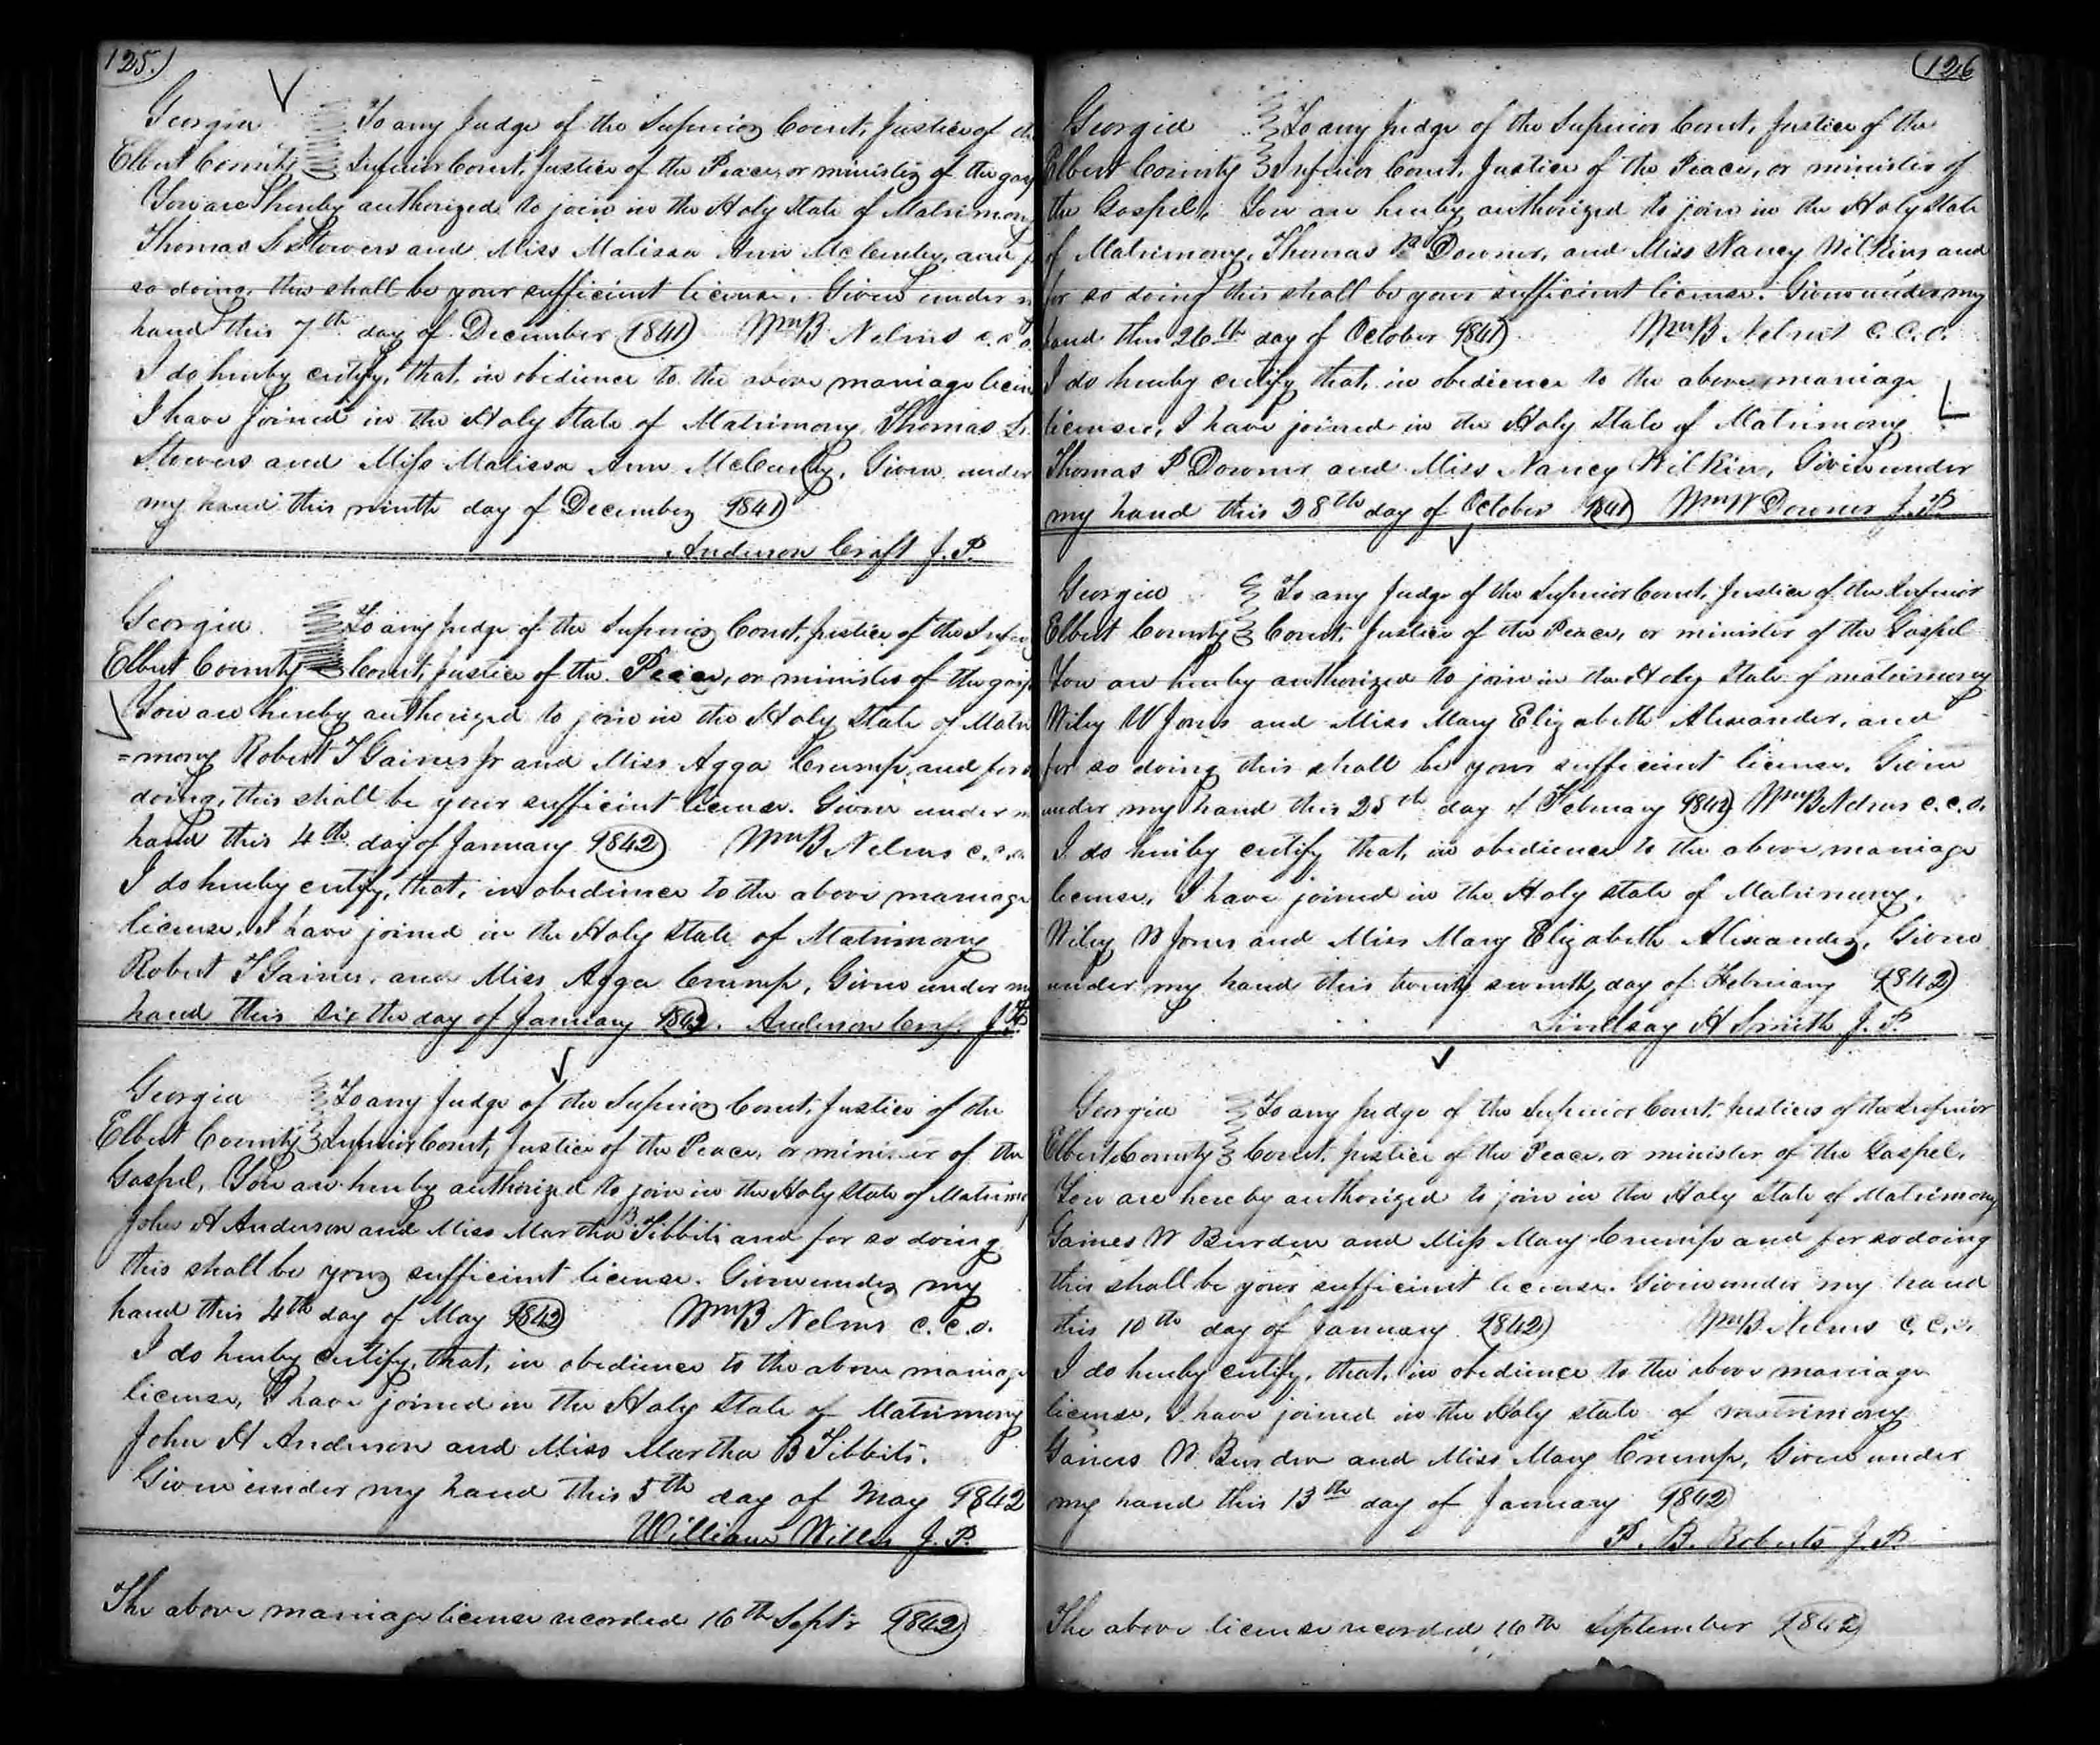 125.
Georgia To any Judge of the Superior Court, Justice of the
Elbert County Inferior Court, Justice of the Peace, or minister of the gosp
You are hereby authorized to join in the Holy State of Matrimony
Thomas Stowers and Miss Malissa Ann McCurley, and f
so doing, this shall be your sufficient license. Given under m
hand this 7th day of December 1841 Wm B. Nelms c.c.o
I do hereby certify, that, in obedience to the above marriage licen
I have joined in the Holy State of Matrimony, Thomas
Stowers and Miss Malissa Ann McCurley, Given under
my hand this ninth day of December 1841
Anderson Craft J.P.
Georgia To any Judge of the Superior Court, Justice of the Infer
Elbert County Court, Justice of the Peace, or minister of the gosp
You are hereby authorized to join in the Holy State of Matri
=mony Robert T Gaines Jr and Miss Agga Crump, and for s
doing, this shall be your sufficient license. Given under m
hand this 4th day of January 1842 Wm B Nelms c.c.o.
I do hereby certify, that, in obedience to the above marriage
license, I have joined in the Holy State of Matrimony
Robert T Gaines, and Miss Agga Crump, Given under my
hand this six the day of January 1842. Anderson Craf. J.P.
Georgia To any Judge of the Superior Court, Justice of the
Elbert County Inferior Court, Justice of the Peace, or minister of the
Gospel, You are hereby authorized to join in the Holy State of Matrimo
John H Anderson and Miss Martha B. Tibbits and for so doing
this shall be your sufficient license. Given under my
hand this 4th day of May 1842 Wm B Nelms c.c.o.
I do hereby certify, that, in obedience to the above marriage
license, I have joined in the Holy State of Matrimony
John H Anderson and Miss Martha B Tibbits.
Given under my hand this 5th day of May 1842
William Willis J.P.
The above marriage license recorded 16th Septr 1842
126
Georgia To any Judge of the Superior Court, Justice of the
Elbert County Inferior Court, Justice of the Peace, or minister of
the Gospel, You are hereby authorized to join in the Holy State
of Matrimony, Thomas P Downer, and Miss Nancy Wilkins and
for so doing this shall be your sufficient license. Given under my
hand this 26th day of October 1841 Wm B Nelms C.C.O.
I do hereby certify that, in obedience to the above marriage
license, I have joined in the Holy State of Matrimony
Thomas P Downer and Miss Nancy Wilkins, Given under
my hand this 28th day of October 1841 Wm W Downer J.P.
Georgia To any Judge of the Superior Court, Justice of the Inferior
Elbert County Court, Justice of the Peace, or minister of the Gospel
You are hereby authorized to join in the Holy State of matrimony
Wiley W Jones and Miss Mary Elizabeth Alexander, and
for so doing this shall be your sufficient license. Given
under my hand this 25th day of February 1842 Wm B Nelms c.c.o.
I do hereby certify that, in obedience to the above marriage
license, I have joined in the Holy state of Matrimony,
Wiley W Jones and Miss Mary Elizabeth Alexander, Given
under my hand this twenty seventh day of February 1842
Lindsay H Smith J.P.
Georgia To any Judge of the Superior Court, Justices of the Inferior
Elbert County Court, Justice of the Peace, or minister of the Gospel,
You are hereby authorized to join in the Holy State of Matrimony
Gaines W Burden and Miss Mary Crump and for so doing
this shall be your sufficient license. Given under my hand
this 10th day of January 1842 Wm B Nelms C.C.O.
I do hereby certify, that, in obedience to the above marriage
license, I have joined in the Holy state of matrimony
Gaines W. Burden and Miss Mary Crump, Given under
my hand this 13th day of January 1842
P. B. Roberts J.P.
The above license recorded 16th September 1842